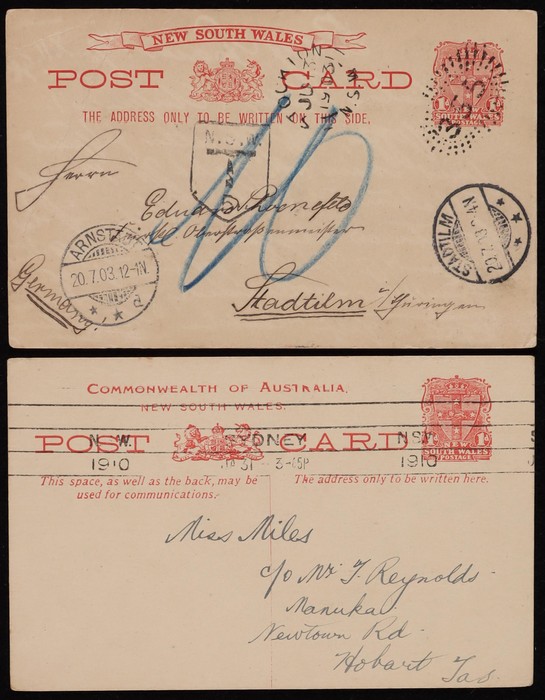 NEW SOUTH WALES
POST CARD
THE ADDRESS ONLY TO BE WRITTEN ON THIS SIDE.
SOUTH WALES
POSTAGE
N.S.W.
T
Herrn
Eduard
Oberstraßenmeister
ARNSTADT
20.7.03.12-1N.
STADTILM
20.7.03
Stadtilm i/Thüringen
Germany
COMMONWEALTH OF AUSTRALIA.
NEW SOUTH WALES.
POST CARD
SOUTH WALES
POSTAGE
N.W. SYDNEY N.S.W.
1910 31 3-45P 1910
This space, as well as the back, may be
used for communications.
The address only to be written here.
Miss Miles
c/o Mr J. Reynolds
Manuka
Newtown Rd
Hobart Tas